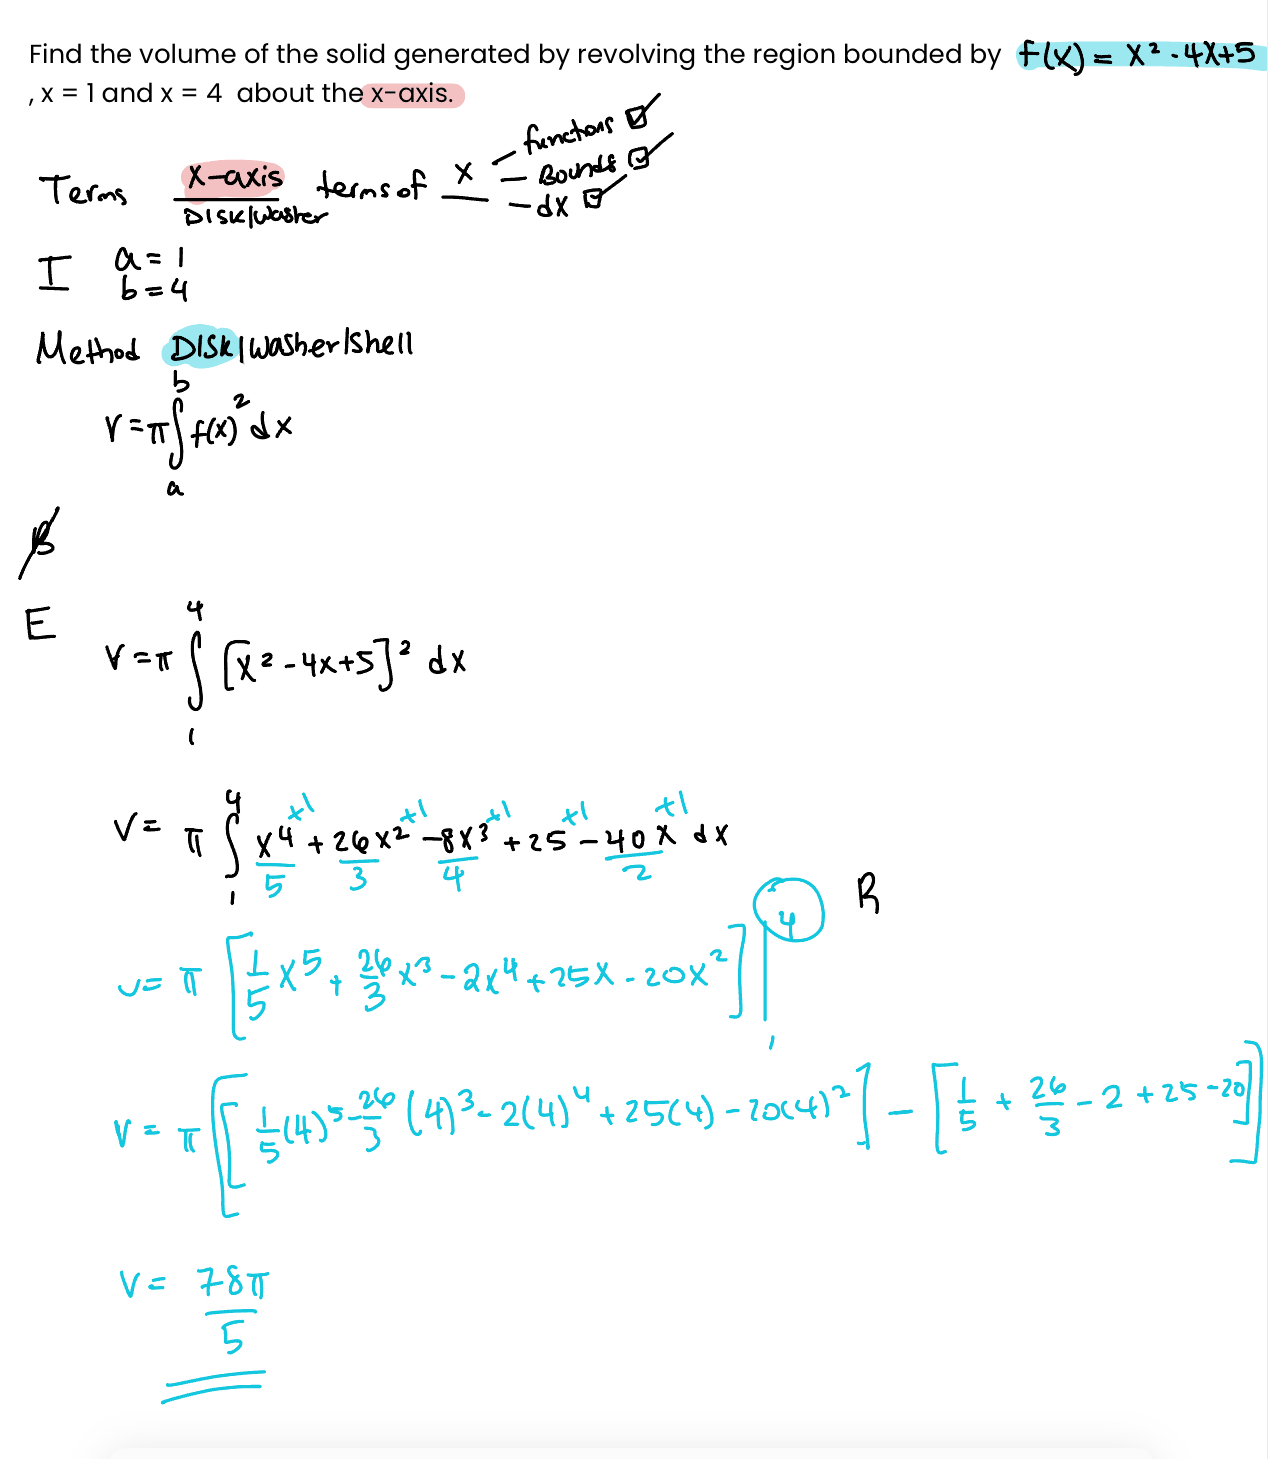 Find the volume of the solid generated by revolving the region bounded by f(x) = x² - 4x+5
, x = 1 and x = 4 about the x-axis.
Terms x-axis terms of x - functions ☑
DISK/washer - Bounds ☑
- dx ☑
I a = 1
b = 4
Method DISK/washer/shell
V = π∫ₐᵇ f(x)² dx
B
E
V = π ∫₁⁴ [x² - 4x+5]² dx
+1 +1 +1 +1 +1
V = π ∫₁⁴ x⁴ + 26x² - 8x³ + 25 - 40x dx
5 3 4 2
R
V = π [1/5 x⁵ + 26/3 x³ - 2x⁴ + 25x - 20x²] |₁⁴
V = π [[1/5 (4)⁵ - 26/3 (4)³ - 2(4)⁴ + 25(4) - 20(4)²] - [1/5 + 26/3 - 2 + 25 - 20]]
V = 78π/5